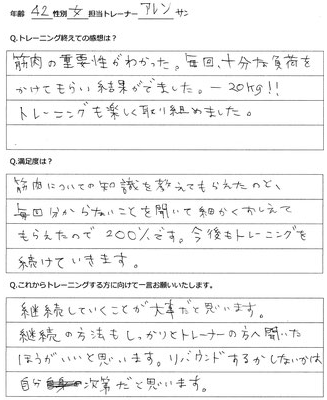 年齢 42 性別 女 担当トレーナー アレン サン
Q.トレーニング終えての感想は？
筋肉の重要性がわかった。毎回、十分な負荷を
かけてもらい結果がでました。－20kg!!
トレーニングも楽しく取り組めました。
Q.満足度は？
筋肉についての知識を教えてもらえたのと、
毎回分からないことを聞いて細かくおしえて
もらえたので200%です。今後もトレーニングを
続けていきます。
Q.これからトレーニングする方に向けて一言お願いいたします。
継続していくことが大事だと思います。
継続の方法もしっかりとトレーナーの方へ聞いた
ほうがいいと思います。リバウンドするかしないかは、
自分次第だと思います。